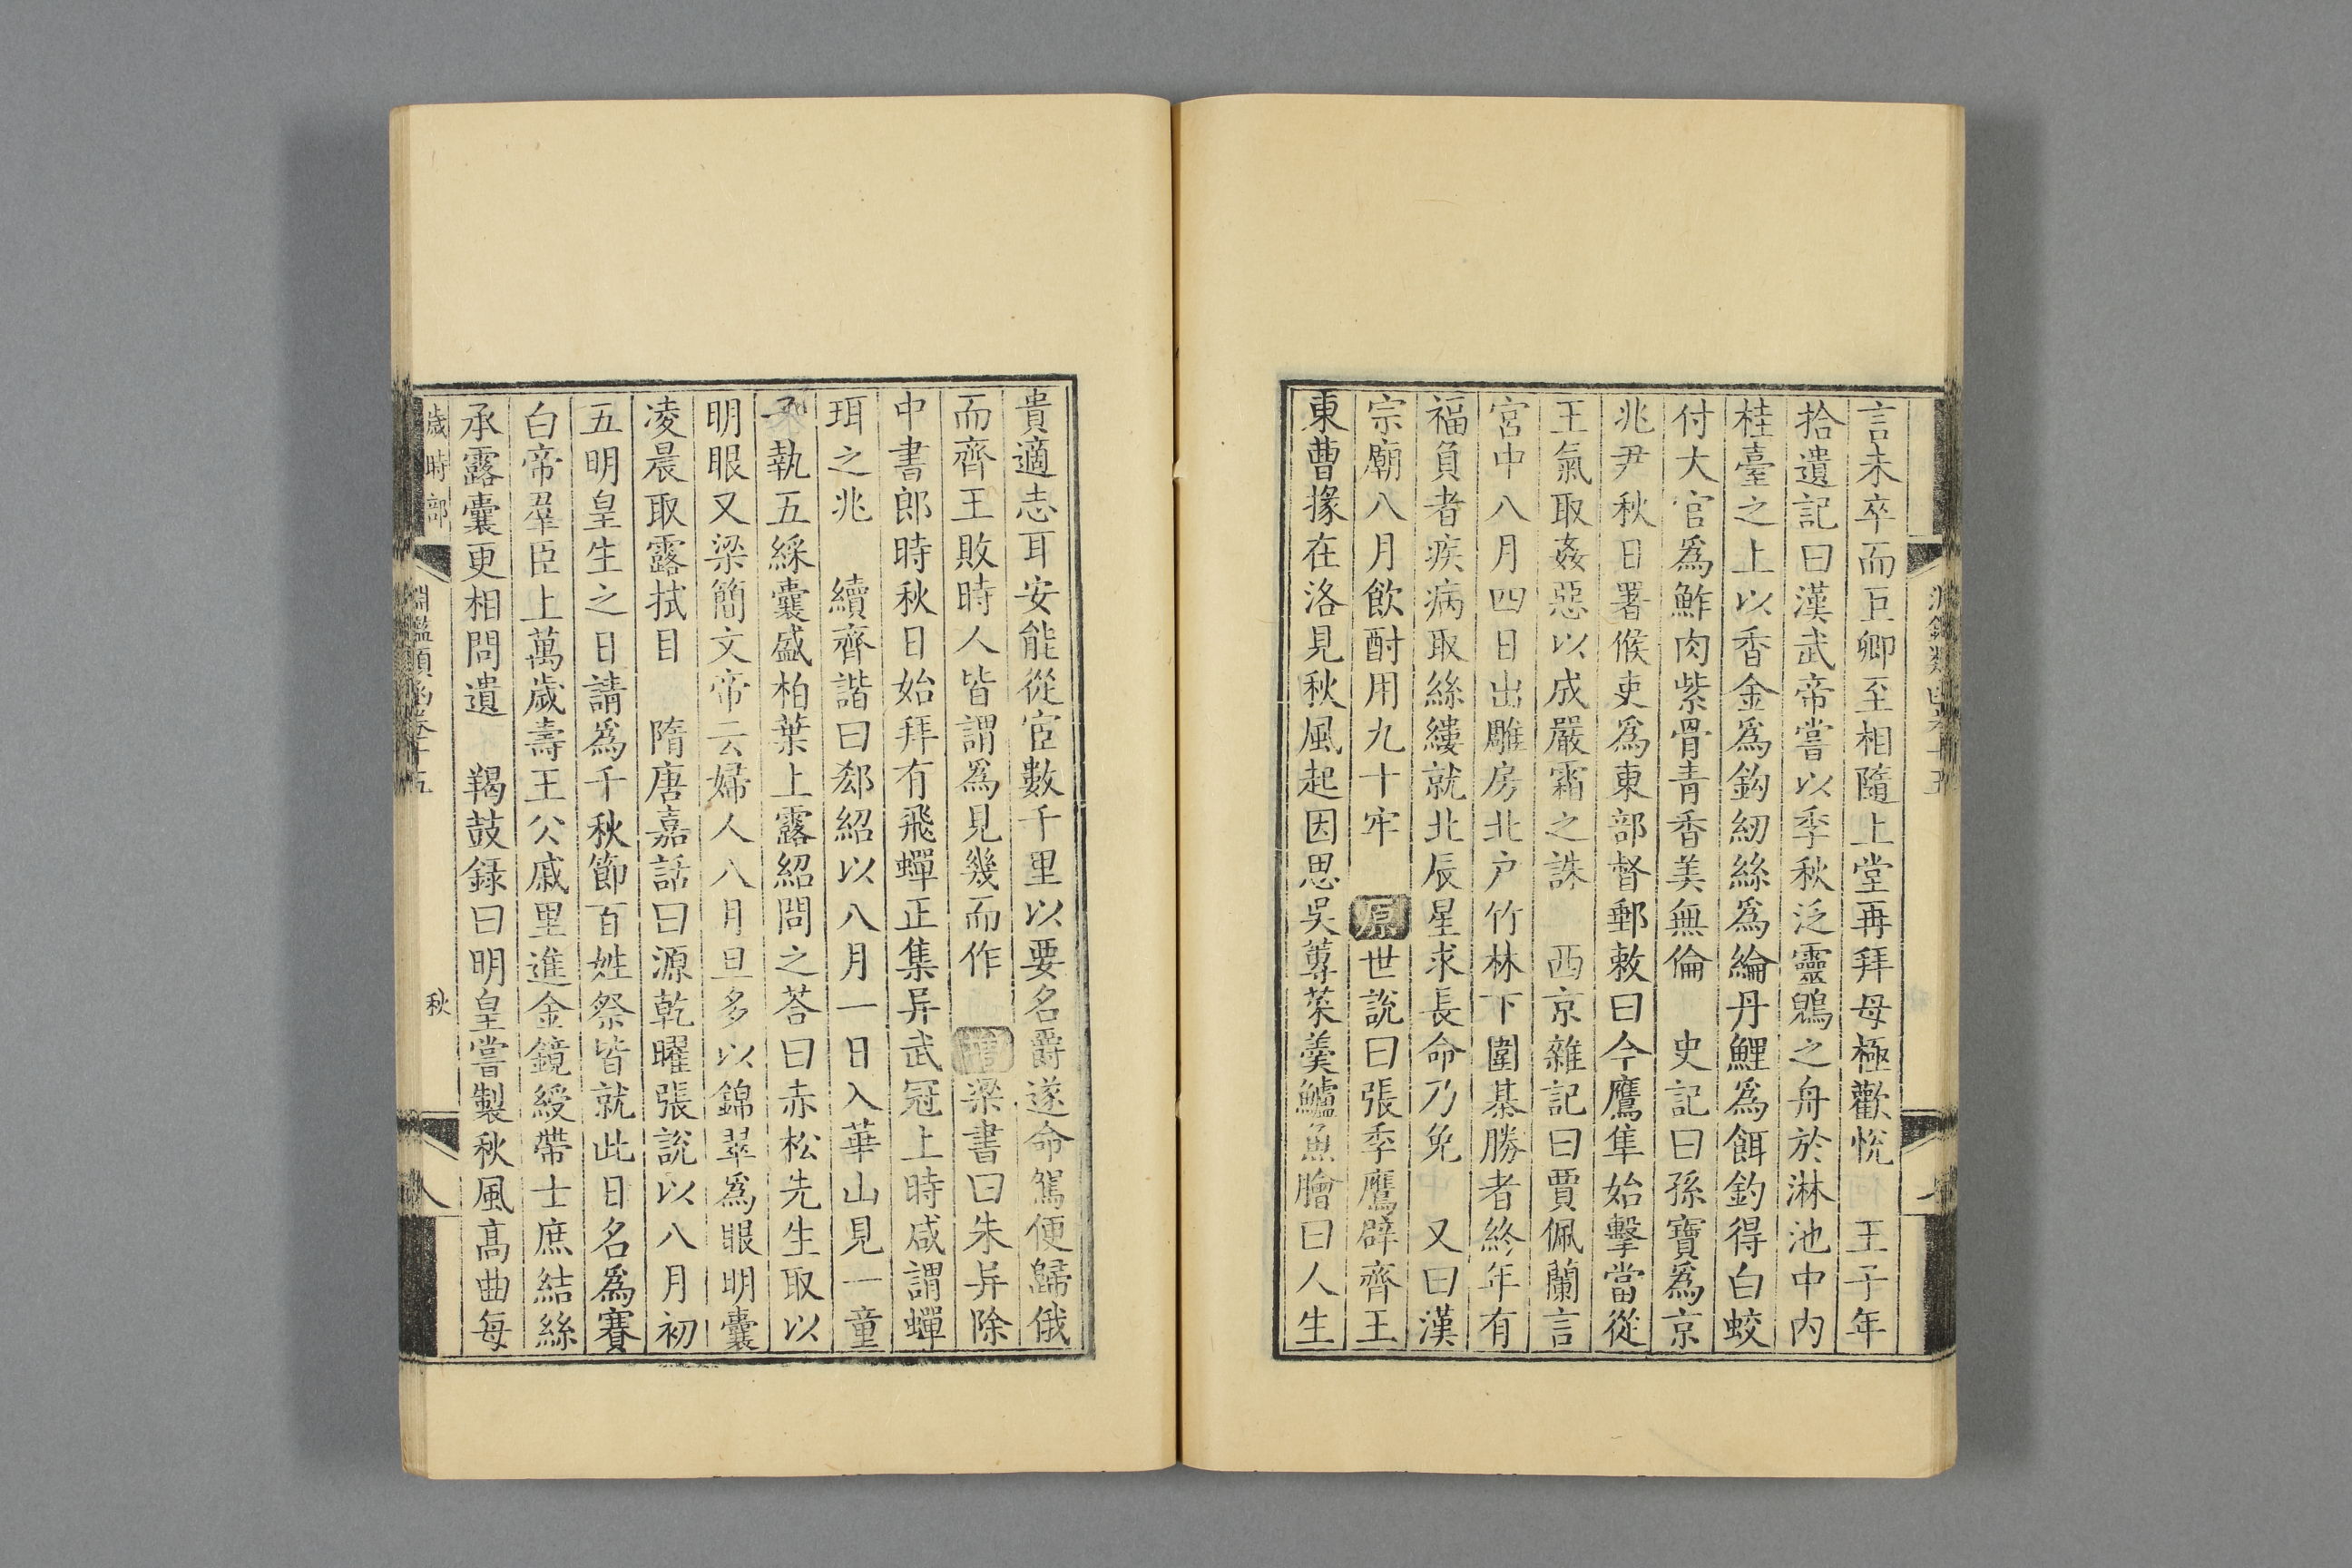 言未卒而巨卿至相隨上堂再拜母極歡悅　王子年
拾遺記曰漢武帝嘗以季秋泛靈鷁之舟於淋池中內
桂臺之上以香金爲鈎紉絲爲綸丹鯉爲餌釣得白蛟
付大官爲鮓肉紫骨青香美無倫　史記曰孫寶爲京
兆尹秋日署候吏爲東部督郵敕曰今鷹隼始擊當從
王氣取姦惡以成嚴霜之誅　西京雜記曰賈佩蘭言
宮中八月四日出雕房北戶竹林下圍棊勝者終年有
福負者疾病取絲縷就北辰星求長命乃免　又曰漢
宗廟八月飲酎用九十牢　原世說曰張季鷹辟齊王
東曹掾在洛見秋風起因思吳蓴菜羹鱸魚膾曰人生
貴適志耳安能從宦數千里以要名爵遂命駕便歸俄
而齊王敗時人皆謂爲見幾而作　增梁書曰朱异除
中書郎時秋日始拜有飛蟬正集异武冠上時咸謂蟬
珥之兆　續齊諧曰鄧紹以八月一日入華山見一童
子執五綵囊盛柏葉上露紹問之荅曰赤松先生取以
明眼又梁簡文帝云婦人八月旦多以錦翠爲眼明囊
凌晨取露拭目　隋唐嘉話曰源乾曜張說以八月初
五明皇生之日請爲千秋節百姓祭皆就此日名爲賽
白帝羣臣上萬歲壽王公戚里進金鏡綬帶士庶結絲
承露囊更相問遺　羯鼓録曰明皇嘗製秋風高曲每
歲時部　淵鑑類函卷十五　秋　八